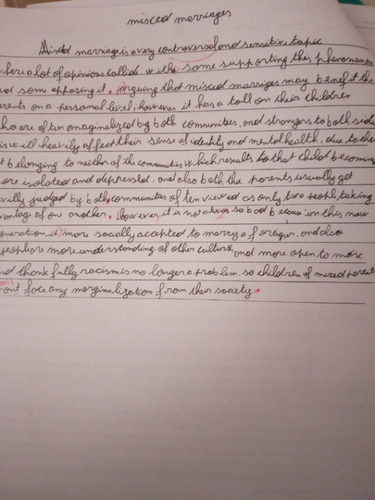 misced marriages
Mixed marriage is a very controversial and sensitive topic
where a lot of opinions collide with some supporting this phenomenon
and some opposing it, arguing that misced marriges may benefit the
parents on a personal level, however it has a toll on their children
who are often marginalized by both communities, and strangers to both side
this will heavily effect their sens of identity and mental health, due to the
not belonging to neither of the communities which results to that child becoming
more isolated and depressed. and also both the parents usually get
heavilly judged by both communities often viewed as only two people taking
advantage of one another, however it is not always so bad because in this new
generation it more socially accepted to marry a foreigner, and also
people are more understanding of other culture, and more open to more
and thankfully racism is no longer a problem, so children of mixed parents
wont face any marginalization from their society.